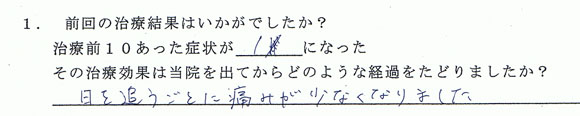 1． 前回の治療結果はいかがでしたか？
治療前１０あった症状が 1 になった
その治療効果は当院を出てからどのような経過をたどりましたか？
日を追うごとに痛みが少なくなりました